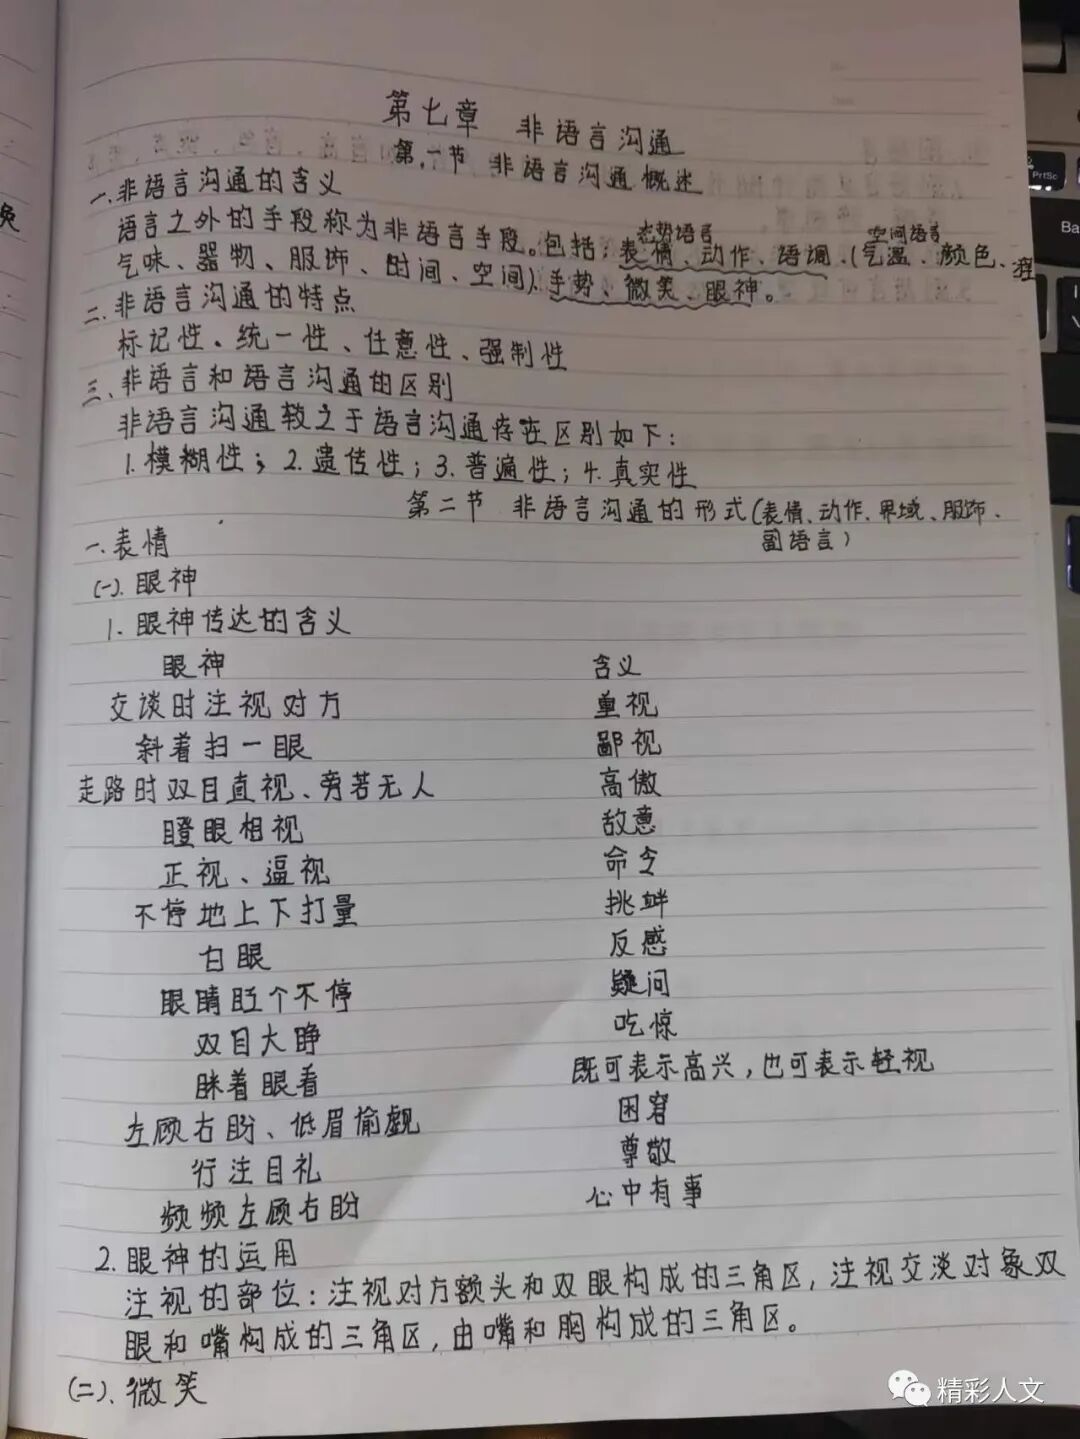 第七章 非语言沟通
第一节 非语言沟通概述
一、非语言沟通的含义
态势语言 空间语言
语言之外的手段称为非语言手段。包括：表情、动作、语调、(气温、颜色、
气味、器物、服饰、时间、空间)、手势、微笑、眼神。
二、非语言沟通的特点
标记性、统一性、任意性、强制性
三、非语言和语言沟通的区别
非语言沟通较之于语言沟通存在区别如下：
1.模糊性；2.遗传性；3.普遍性；4.真实性
第二节 非语言沟通的形式(表情、动作、界域、服饰、
副语言)
一.表情
(一).眼神
1.眼神传达的含义
眼神 含义
交谈时注视对方 重视
斜着扫一眼 鄙视
走路时双目直视、旁若无人 高傲
瞪眼相视 敌意
正视、逼视 命令
不停地上下打量 挑衅
白眼 反感
眼睛眨个不停 疑问
双目大睁 吃惊
眯着眼看 既可表示高兴，也可表示轻视
左顾右盼、低眉偷觑 困窘
行注目礼 尊敬
频频左顾右盼 心中有事
2.眼神的运用
注视的部位：注视对方额头和双眼构成的三角区，注视交谈对象双
眼和嘴构成的三角区，由嘴和胸构成的三角区。
(二).微笑
精彩人文